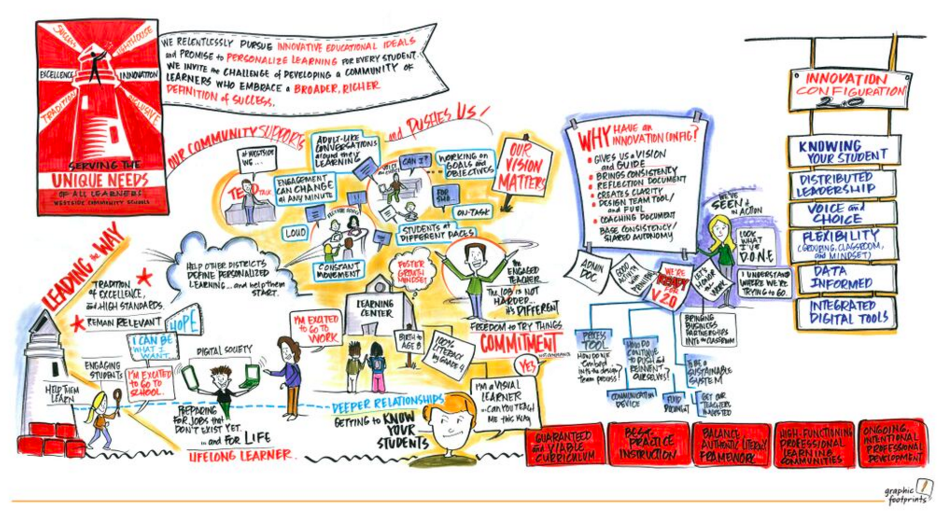 SYSTEM
LIGHTHOUSE
EXCELLENCE
INNOVATION
TRADITION
INCLUSIVE
SERVING THE
UNIQUE NEEDS
OF ALL LEARNERS
WESTSIDE COMMUNITY SCHOOLS
WE RELENTLESSLY PURSUE INNOVATIVE EDUCATIONAL IDEALS
and PROMISE to PERSONALIZE LEARNING FOR EVERY STUDENT.
WE INVITE the CHALLENGE of DEVELOPING a COMMUNITY OF
LEARNERS WHO EMBRACE a BROADER, RICHER
DEFINITION of SUCCESS.
OUR COMMUNITY SUPPORTS
and PUSHES US!
AT WESTSIDE
WE...
TED TALK
ADULT-LIKE
CONVERSATIONS
around their
LEARNING
ENGAGEMENT
CAN CHANGE at
ANY MINUTE
LOUD
CONSTANT
MOVEMENT
CAN I?
WORKING on
GOALS and
OBJECTIVES
FOR
SME...
ON-TASK
STUDENTS at
DIFFERENT PACES
OUR
VISION
MATTERS
WHY HAVE an
INNOVATION CONFIG?
GIVES US a VISION
and GUIDE
BRINGS CONSISTENCY
REFLECTION DOCUMENT
CREATES CLARITY
DESIGN TEAM TOOL/
and FUEL
COACHING DOCUMENT
BASE CONSISTENCY/
SHARED AUTONOMY
WE'VE
SEEN it
IN ACTION
LOOK
WHAT
I'VE
DONE
I UNDERSTAND
WHERE WE'RE
TRYING to GO.
ADMIN
DOC
WE'RE
READY
V 2.0
LET'S
HONOR
the
WORK
INNOVATION
CONFIGURATION
2.0
KNOWING
YOUR STUDENT
DISTRIBUTED
LEADERSHIP
VOICE and
CHOICE
FLEXIBILITY
(GROUPING, CLASSROOM,
and MINDSET)
DATA
INFORMED
INTEGRATED
DIGITAL TOOLS
LEADING the WAY
TRADITION
of EXCELLENCE,
and HIGH STANDARDS.
REMAIN RELEVANT
HOPE
I CAN BE
WHAT I
WANT.
ENGAGING
STUDENTS
I'M EXCITED
to GO to
SCHOOL.
HELP THEM
LEARN
HELP OTHER DISTRICTS
DEFINE PERSONALIZED
LEARNING ...and help them
START.
DIGITAL SOCIETY
PREPARING
FOR JOBS that
DON'T EXIST YET.
...and FOR LIFE
LIFELONG LEARNER.
I'M EXCITED
to GO to
WORK
FOSTER
GROWTH
MINDSET
LEARNING
CENTER
BIRTH to
AGE 8
100%
LITERACY
by GRADE 4
DEEPER RELATIONSHIPS
GETTING to KNOW
YOUR
STUDENTS
the ENGAGED
TEACHER
The JOB is NOT
HARDER...
it's DIFFERENT
FREEDOM to TRY THINGS
COMMITMENT
YES
I'M a VISUAL
LEARNER
...CAN YOU TEACH
ME THIS WAY
PROCESS
TOOL
HOW DO WE
EMBED
INTO the DESIGN
TEAM PROCESS?
HOW DO WE
CONTINUE
to PUSH &
REINVENT
OURSELVES?
BRINGING
BUSINESS
PARTNERSHIPS
INTO the CLASSROOM
to BE a
SUSTAINABLE
SYSTEM
COMMUNICATION
DEVICE
GET OUR
TEACHERS
GUARANTEED
and VIABLE
CURRICULUM
BEST-
PRACTICE
INSTRUCTION
BALANCE
AUTHENTIC LITERACY
FRAMEWORK
HIGH-FUNCTIONING
PROFESSIONAL
LEARNING
COMMUNITIES
ONGOING,
INTENTIONAL
PROFESSIONAL
DEVELOPMENT
graphic
footprints